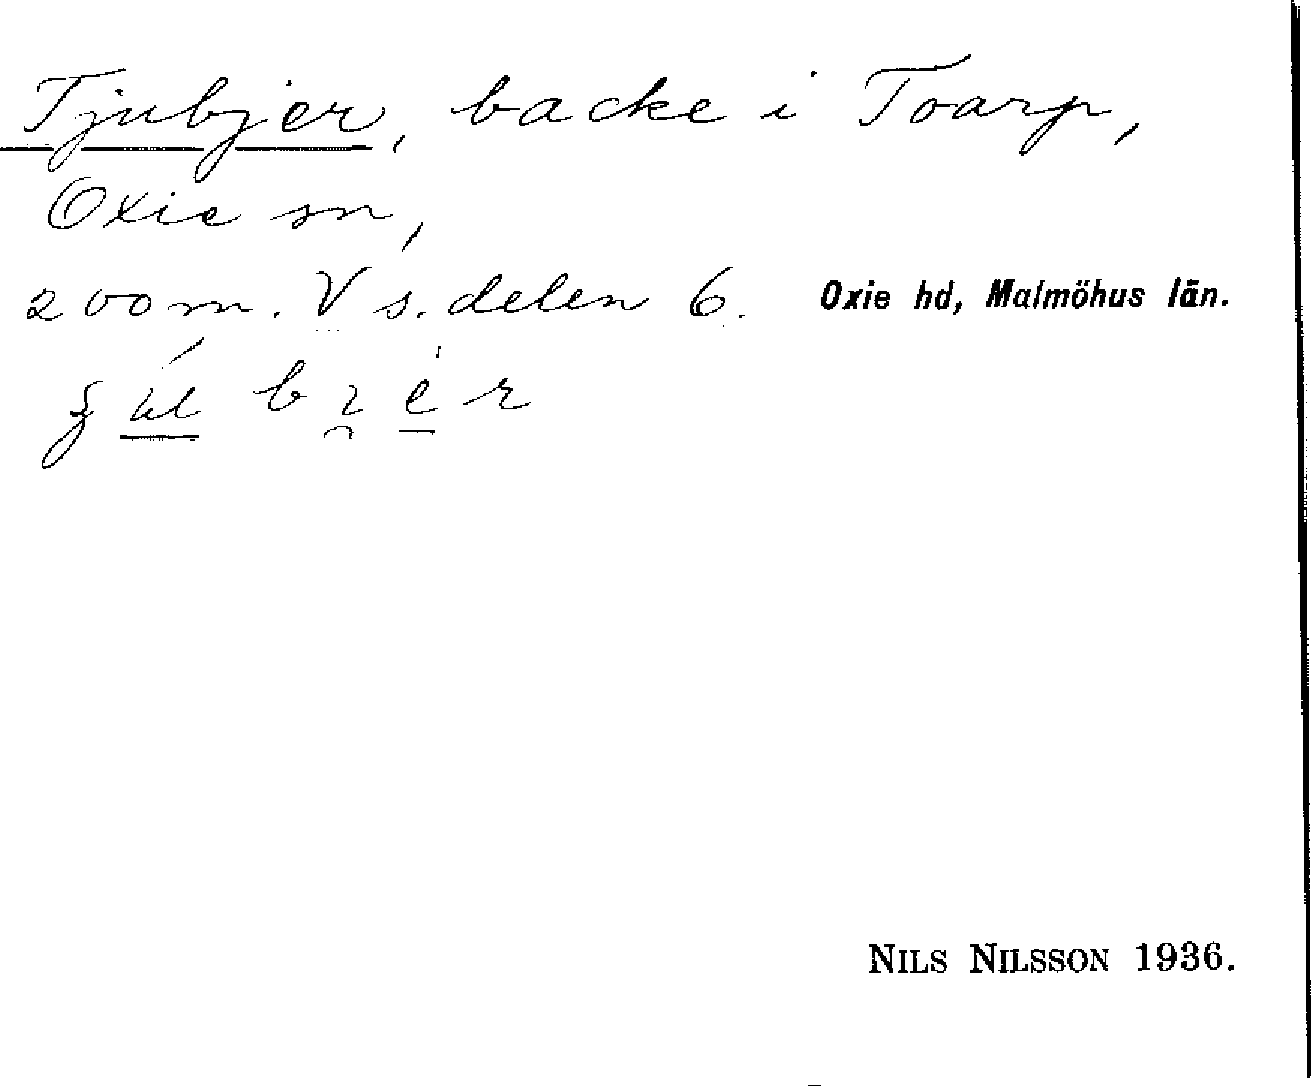 Tjubjer, backe i Toarp,
Oxie sn,
200 m. V s. delen 6. Oxie hd, Malmöhus län.
NILS NILSSON 1936.